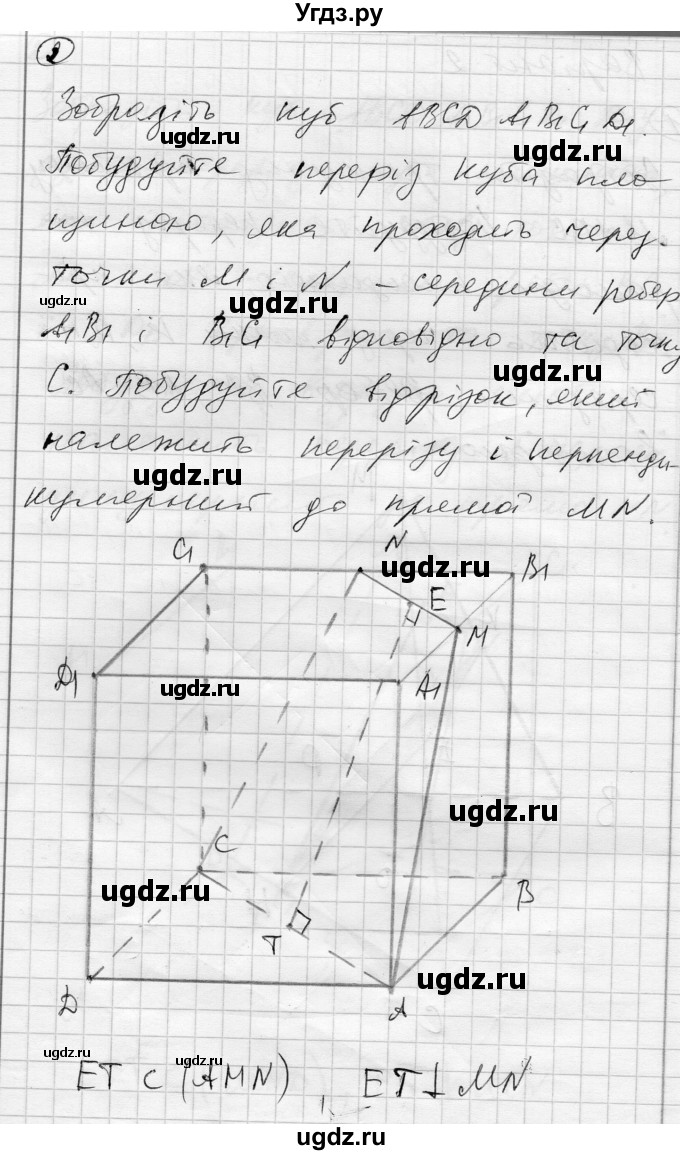 Угдз.ру
2
Зобразіть куб ABCD A₁B₁C₁D₁.
ugdz.ru
ugdz.ru
Побудуйте переріз куба пло
щиною, яка проходить через
точки M і N – середини ребер
ugdz.ru
ugdz.ru
A₁B₁ і B₁C₁ відповідно та точку
C. Побудуйте відрізок, який
належить перерізу і перпенди
ugdz.ru
кулярний до прямої MN.
C₁ N B₁
ugdz.ru
E
M
D₁ A₁
ugdz.ru
ugdz.ru
C
ugdz.ru
B
T
ugdz.ru
D A
ugdz.ru
ugdz.ru
ET ⊂ (AMN), ET ⊥ MN
ugdz.ru
ugdz.ru